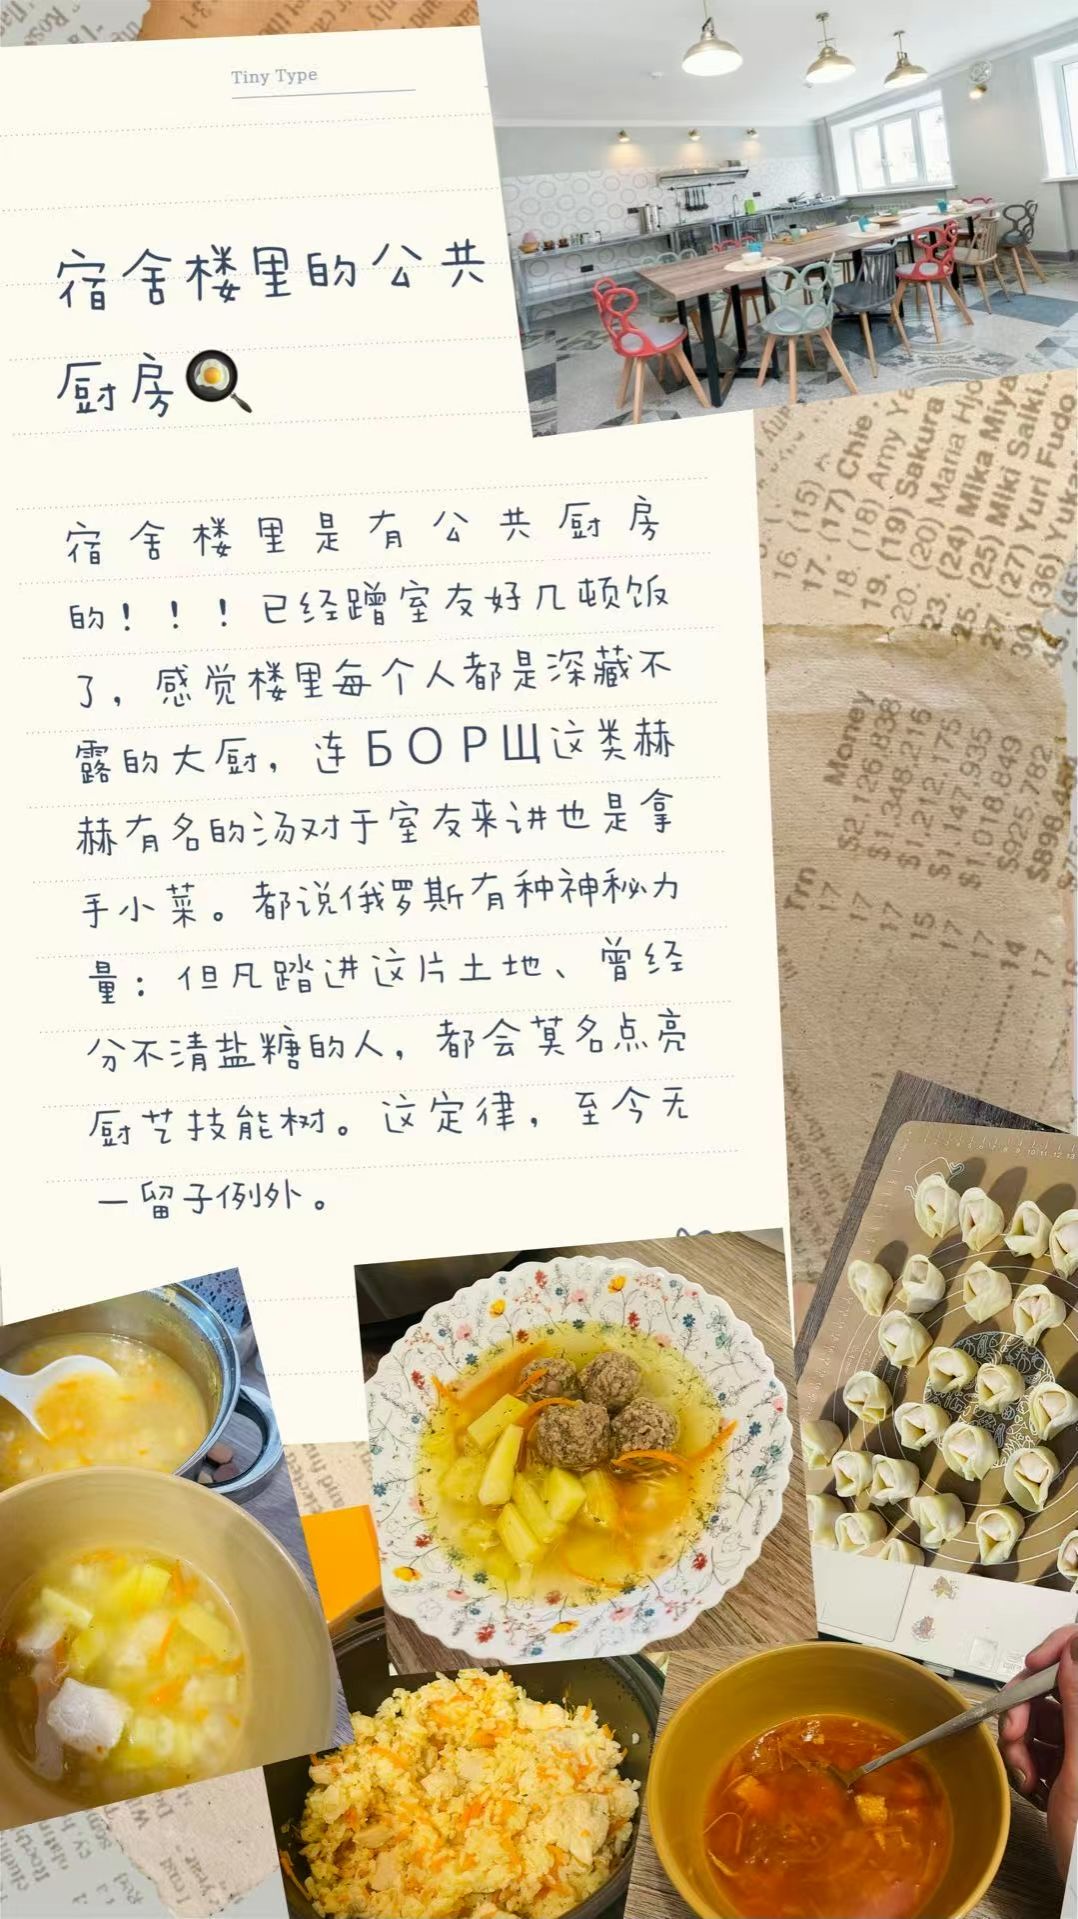 Tiny Type
宿舍楼里的公共
厨房🍳
宿舍楼里是有公共厨房
的！！！已经蹭室友好几顿饭
了，感觉楼里每个人都是深藏不
露的大厨，连БОРЩ这类赫
赫有名的汤对于室友来讲也是拿
手小菜。都说俄罗斯有种神秘力
量：但凡踏进这片土地、曾经
分不清盐糖的人，都会莫名点亮
厨艺技能树。这定律，至今无
一留子例外。
16. (15)
17. (17) Chie
18. (18) Amy Ya
19. (19) Sakura
20. (20) Maria Ho
23. (24) Mika Miya
25. (25) Miki Saiki
27. (27) Yuri Fudo
30. (36) Yuka
Trn
Money
17
$2,126,838
17
$1,348,216
17
$1,212,175
15
$1,147,935
17
1,018,849
17
$925,782
14
$898,451
17
16